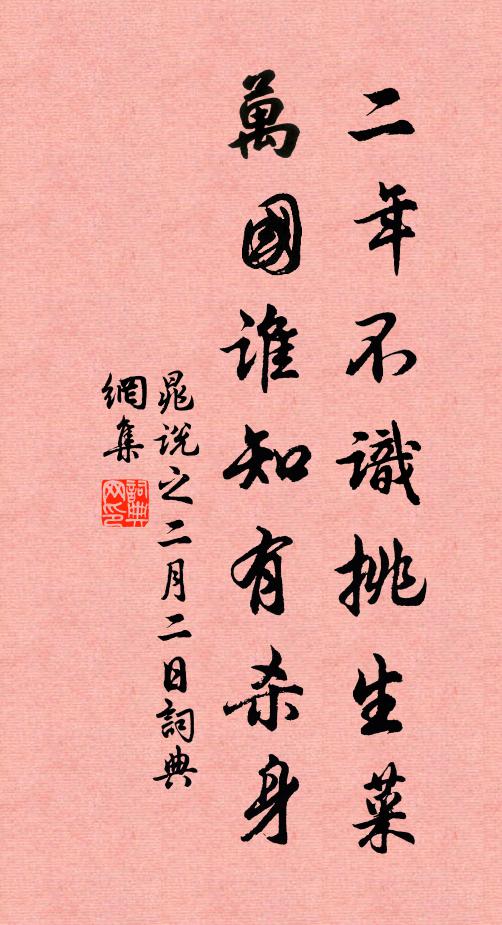 二年不識挑生菜
萬國誰知有杀身
晁說之二月二日詞典
網集
詞典
网印